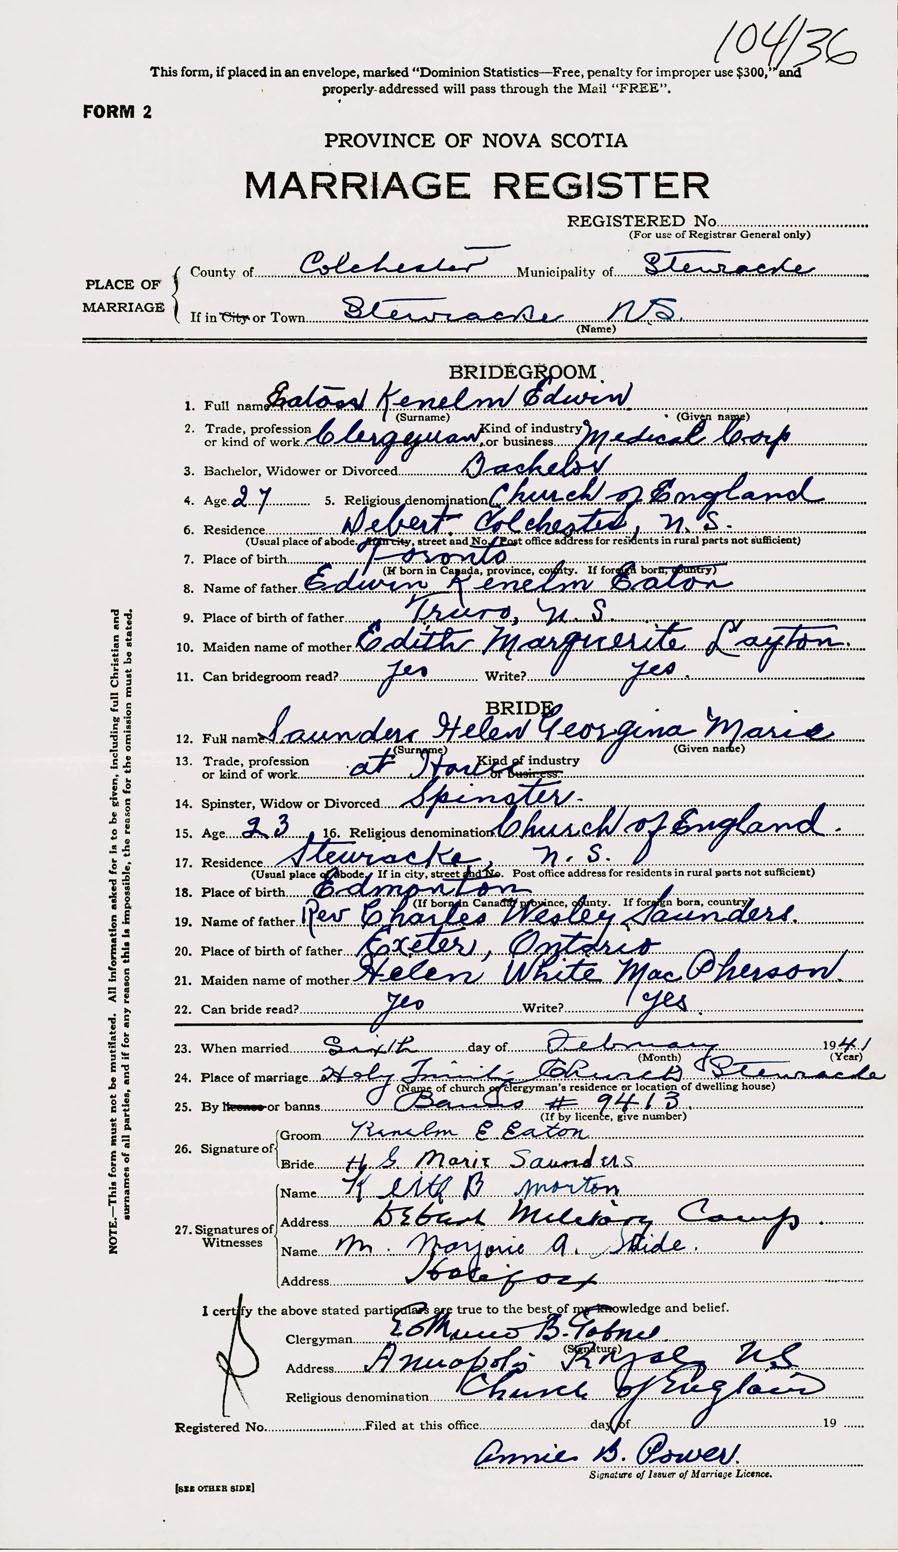 104/36
This form, if placed in an envelope, marked "Dominion Statistics—Free, penalty for improper use $300," and
properly addressed will pass through the Mail "FREE".
FORM 2
PROVINCE OF NOVA SCOTIA
MARRIAGE REGISTER
REGISTERED No.
(For use of Registrar General only)
PLACE OF MARRIAGE
County of Colchester Municipality of Stewiacke
If in City or Town Stewiacke NS.
(Name)
BRIDEGROOM
1. Full name Eaton Kenelm Edwin
(Surname) (Given name)
2. Trade, profession or kind of work Clergyman Kind of industry or business Medical Corp
3. Bachelor, Widower or Divorced Bachelor
4. Age 27 5. Religious denomination Church of England
6. Residence Debert. Colchester, N.S.
(Usual place of abode. If in city, street and No. Post office address for residents in rural parts not sufficient)
7. Place of birth Toronto
(If born in Canada, province, county. If foreign born, country)
8. Name of father Edwin Kenelm Eaton
9. Place of birth of father Truro, N.S.
10. Maiden name of mother Edith Marguerite Layton.
11. Can bridegroom read? yes Write? yes.
BRIDE
12. Full name Saunders Helen Georgina Marie
(Surname) (Given name)
13. Trade, profession or kind of work at Home Kind of industry or business
14. Spinster, Widow or Divorced Spinster.
15. Age 23 16. Religious denomination Church of England.
17. Residence Stewiacke, N.S.
(Usual place of abode. If in city, street and No. Post office address for residents in rural parts not sufficient)
18. Place of birth Edmonton
(If born in Canada, province, county. If foreign born, country)
19. Name of father Rev Charles Wesley Saunders.
20. Place of birth of father Exeter, Ontario
21. Maiden name of mother Helen White MacPherson.
22. Can bride read? yes Write? yes.
23. When married Sixth day of February 1941
(Month) (Year)
24. Place of marriage Holy Trinity Church Stewiacke
(Name of church or clergyman's residence or location of dwelling house)
25. By license or banns Banns # 9413
(If by licence, give number)
26. Signature of
Groom Kenelm E Eaton
Bride H G Marie Saunders
27. Signatures of Witnesses
Name B Morton
Address Debert Military Camp.
Name M. Marjorie A.
Address Halifax
I certify the above stated particulars are true to the best of my knowledge and belief.
Clergyman B.
(Signature)
Address Annapolis Royal NS
Religious denomination Church of England
Registered No. Filed at this office day of 19
Annie B. Power.
Signature of Issuer of Marriage Licence.
[SEE OTHER SIDE]
NOTE.—This form must not be mutilated. All information asked for is to be given, including full Christian and
surnames of all parties, and if for any reason this is impossible, the reason for the omission must be stated.